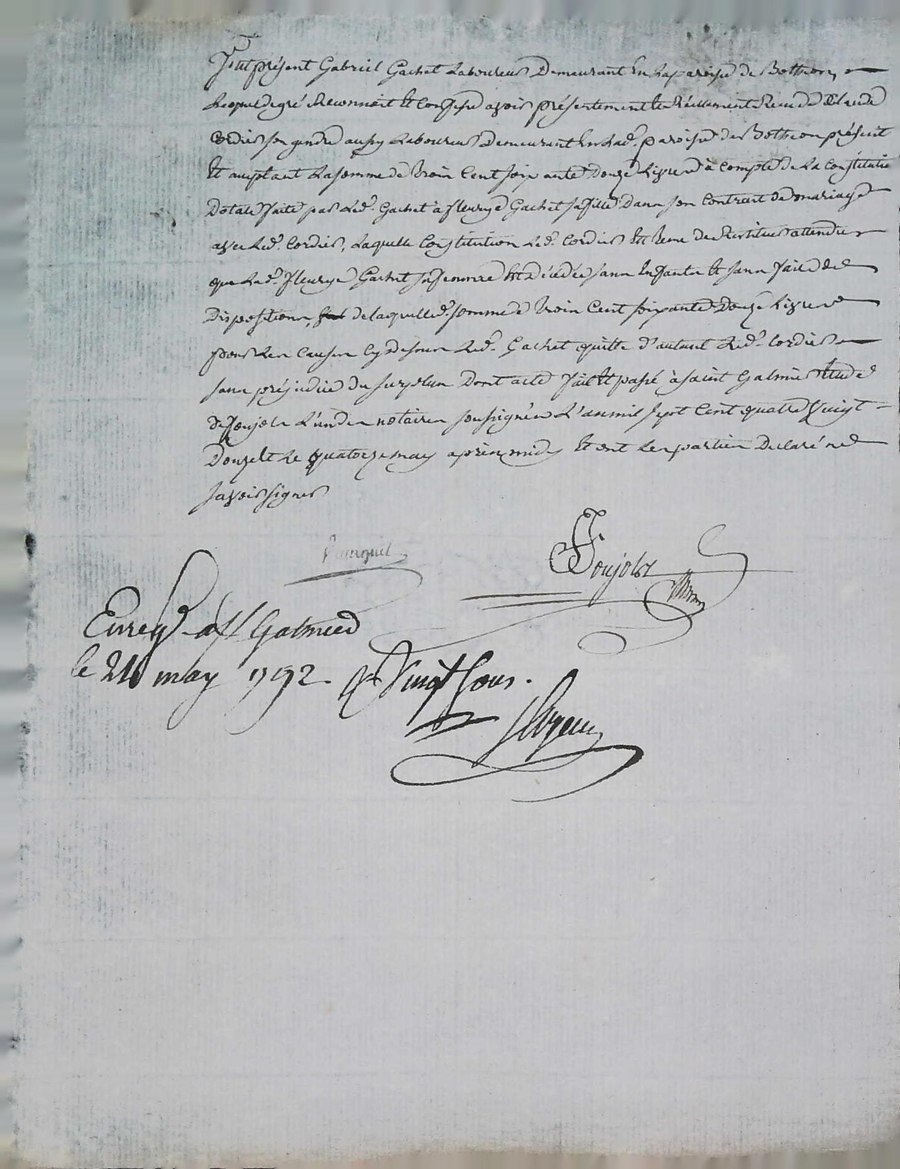 Fut présent Gabriel Gachet Laboureur Demeurant En La paroisse de Botheon,
Lequel de gré a Reconnoit Et Confesse avoir présentement Et Réellement Reçu de Claude
Cordier son gendre aussy Laboureur Demeurant En Lad. paroisse de Botheon présent
Et acceptant La somme de Trois Cent soixante Douze Livres à Compte de La Constitution
Dotale faite par Led. Gachet à fleurye Gachet sa fille Dans son Contrat de mariage
avec Led. Cordier, Laquelle Constitution Led. Cordier Est tenu de Restituer attendu
que Lad. fleurye Gachet sa femme Est décédée sans Enfants Et sans faire de
Dispositions, de laquelle d. somme de Trois Cent soixante Douze Livres
pour Les Causes Cy dessus Led. Gachet quitte d'autant Led. Cordier
sans préjudice du surplus Dont acte fait Et passé à saint Galmier Etude
de Poujols L'un des notaires soussignés L'an mil sept Cent quatre Vingt
Douze Et Le quatorze may après midy Et ont Les parties Declaré ne
savoir signer
Poujols
Enreg. à St Galmier
le 24 may 1792. R. Vingt Sous.